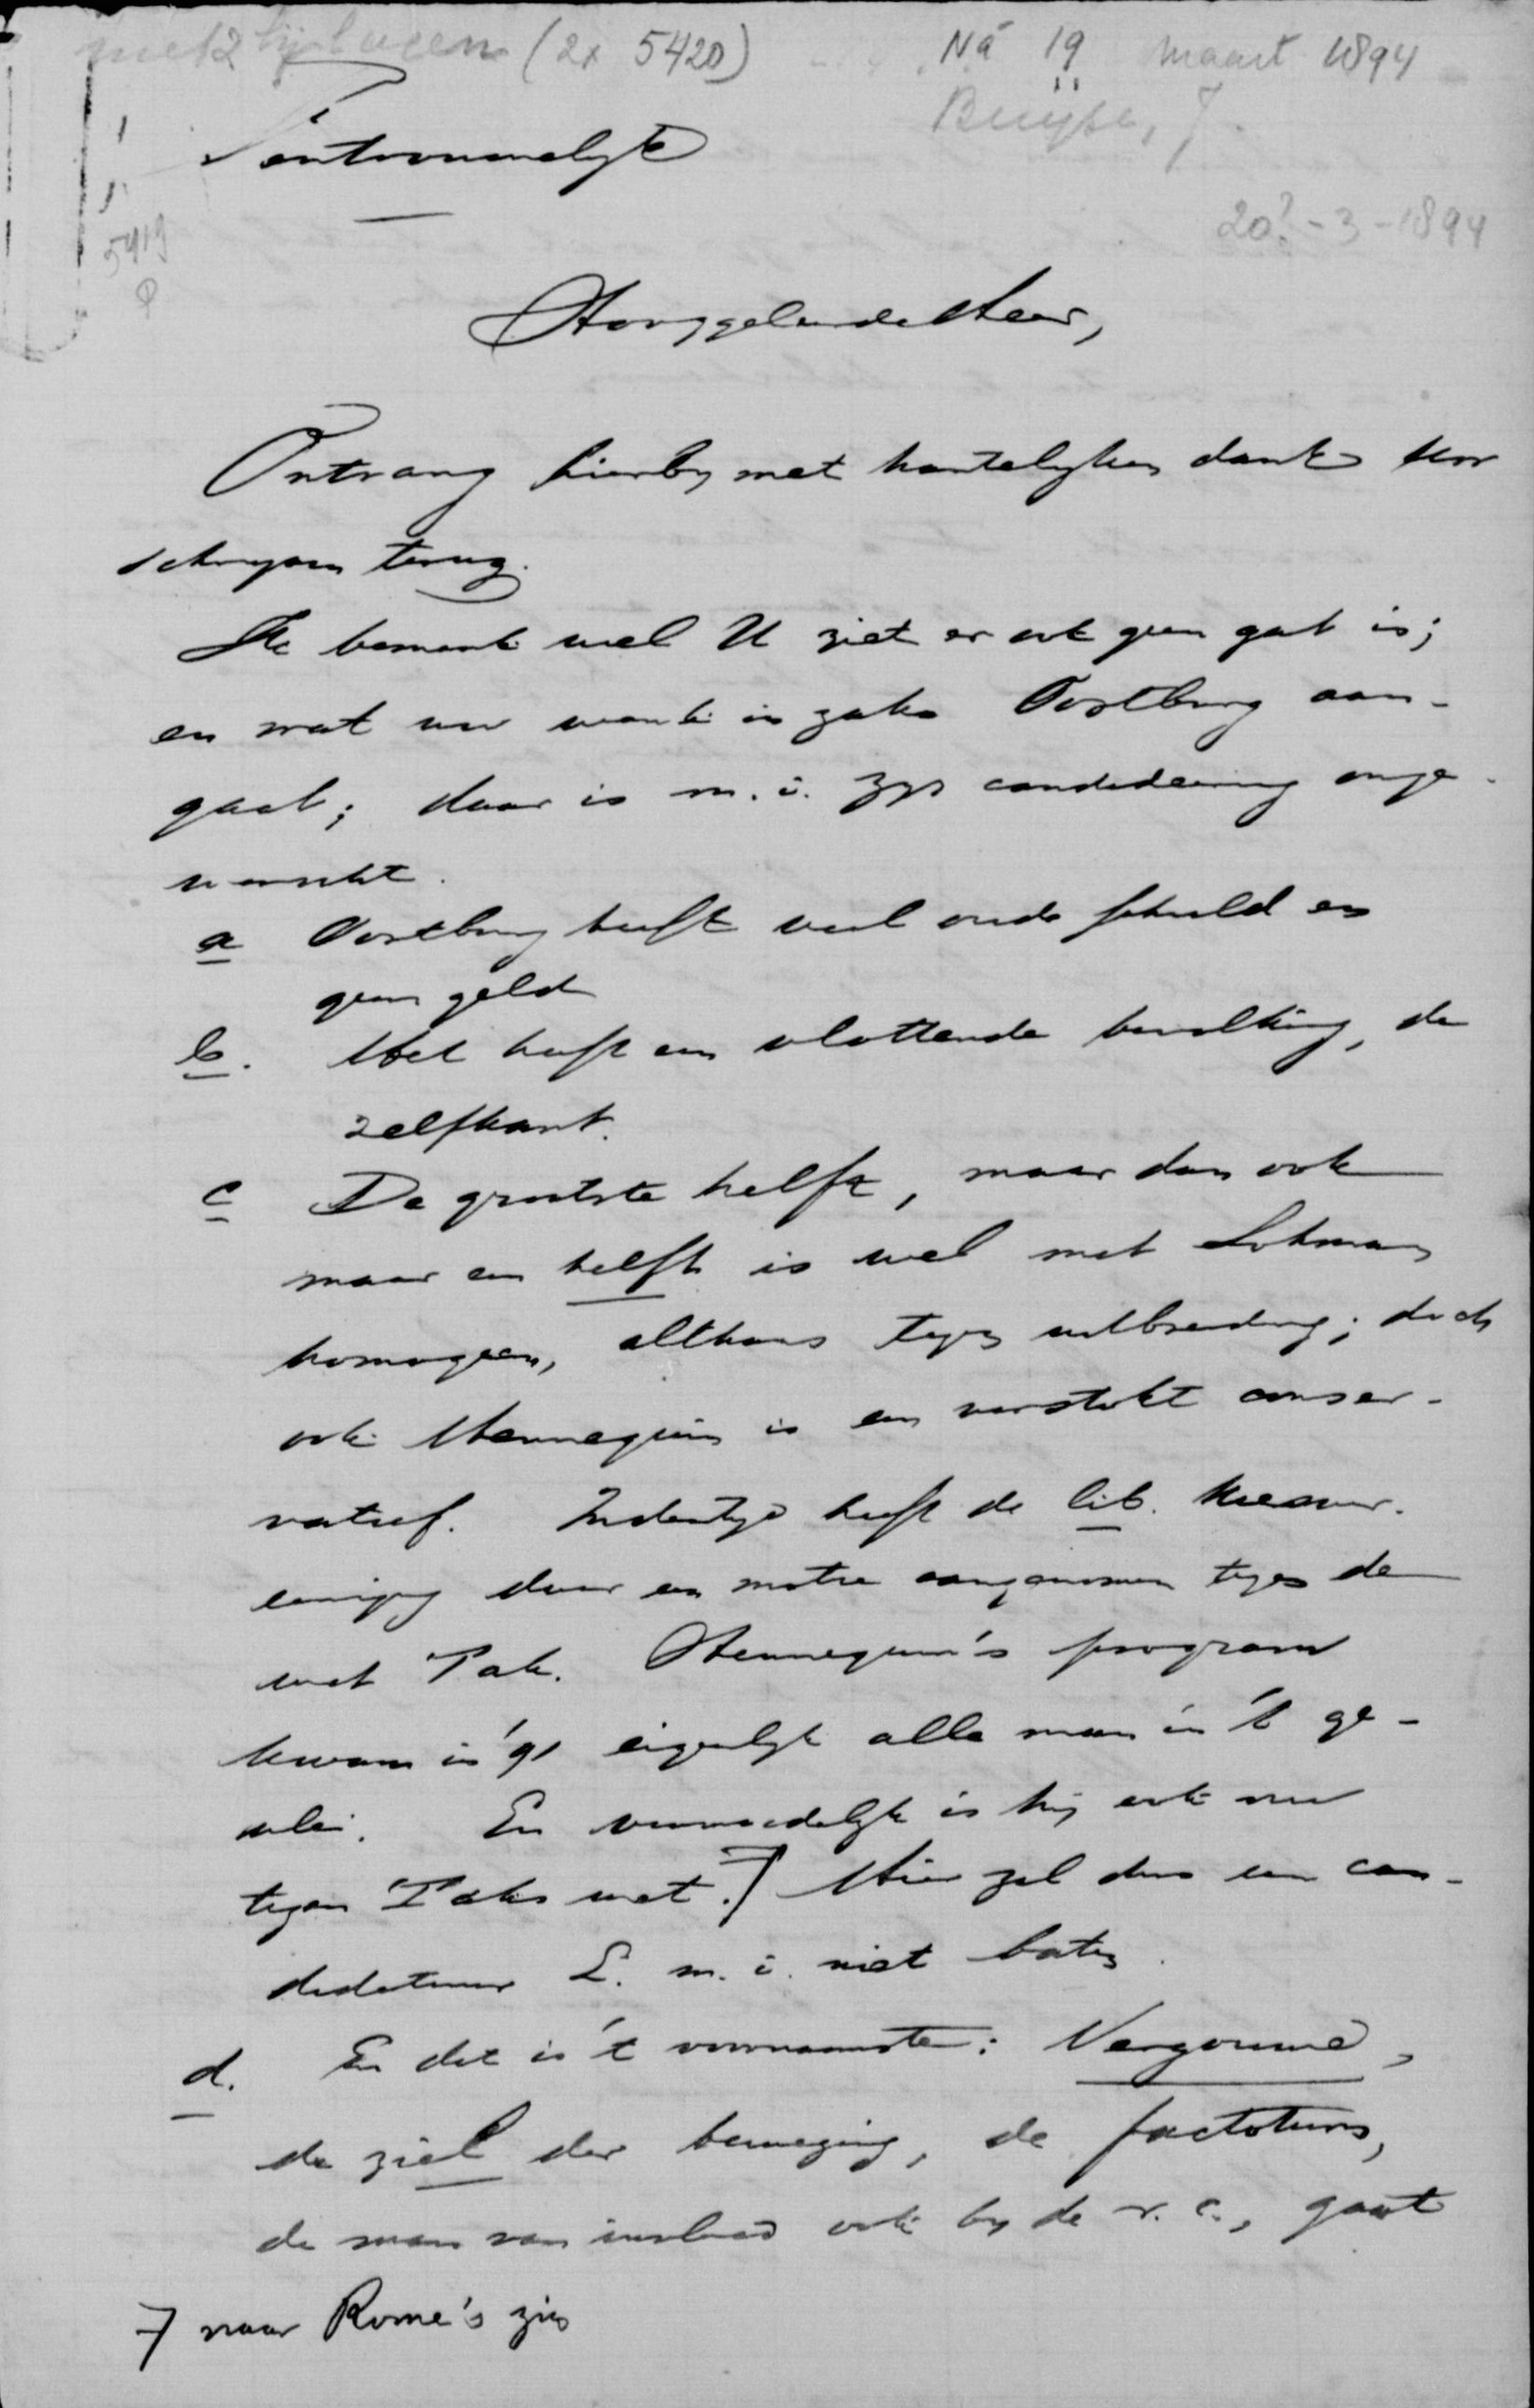 met 2 bijlagen (2x 5420) Ná 19 maart 1894
Buijse, J.
Vertrouwelyk
20?-3-1894
5419
Hooggeleerde Heer,
Ontvang hierby met hartelyken dank Uw
schryven terug.
Ik bemerk wel U ziet er ook geen gat in;
en wat uw wenk in zake Oostburg aan-
gaat; daar is m.i. zyn candideering onge-
wenscht.
a Oostburg heeft veel oude schuld en
geen geld
b. Het heeft een vlottende bevolking, de
zelfkant.
c De grootste helft, maar dan ook
maar een helft is wel met Lohman
homogeen, althans tegen uitbreiding; doch
ook Hennequin is een verstokt conser-
vatief. Indertyd heeft de lib. Kiesver-
eeniging daar een motie aangenomen tegen de
wet Tak. Hennequin's program
kwam in '91 eigenlyk alle man in 't ge-
vlei. En vermoedelyk is hij ook nu
tegen Taks wet. Hier zal dus een can-
didatuur L. m.i. niet baten.
d. En dit is 't voornaamste: Vergouwe,
de ziel der beweging, de factotum,
de man van invloed ook by de r.c., gaat
naar Rome's zin